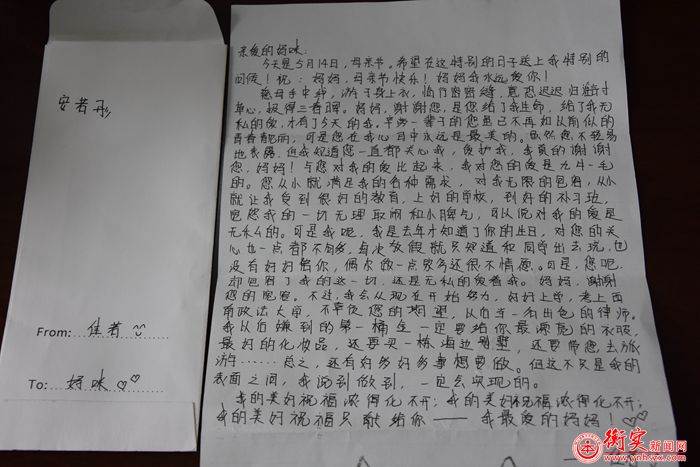 安若彤
From: 佳若
To: 妈咪
亲爱的妈咪:
今天是5月14日,母亲节。希望在这特别的日子送上我特别的
问候!祝:妈妈,母亲节快乐!妈妈我永远爱你!
慈母手中线,游子身上衣,临行密密缝,意恐迟迟归。谁言寸
草心,报得三春晖。妈妈,谢谢您,是您给了我生命,给了我无
私的爱,才有了今天的我。
青春靓丽,可是您在我心目中永远是最美的。虽然您不轻易
地表露,但我知道您一直都关心我,爱护我,我真的谢谢
您,妈妈!与您对我的爱比起来,我对您的爱是九牛一毛
的。您从小就满足我的各种需求,对我无限的包容,从小
就让我受到很好的教育,上好的学校,到好的补习班,
包容我的一切无理取闹和小脾气,可以说对我的爱是
无私的。可是我呢,我是去年才知道了你的生日,对您的关
心也一点都不够多,每次放假就只知道和同学出去玩,也
没有好好陪你,偶尔做一点家务还很不情愿。可是,您呢,
却包容了我的这一切,还是无私的爱着我。妈妈,谢谢
您的包容。不过,我会从现在开始努力,好好上学,考上西
南政法大学,不辜负您的期望,从而当一名出色的律师。
我以后赚到的第一桶金一定要给你最漂亮的衣服,
最好的化妆品,还要买一栋海边别墅,还要带您去旅
游……总之,还有好多好多事想要做。但这不只是我的
表面之间,我说到做到,一定会实现的。
我的美好祝福浓得化不开;我的美好祝福浓得化不开;
我的美好祝福只献给你——我最爱的妈妈!
衡实新闻网
www.ynhszx.com